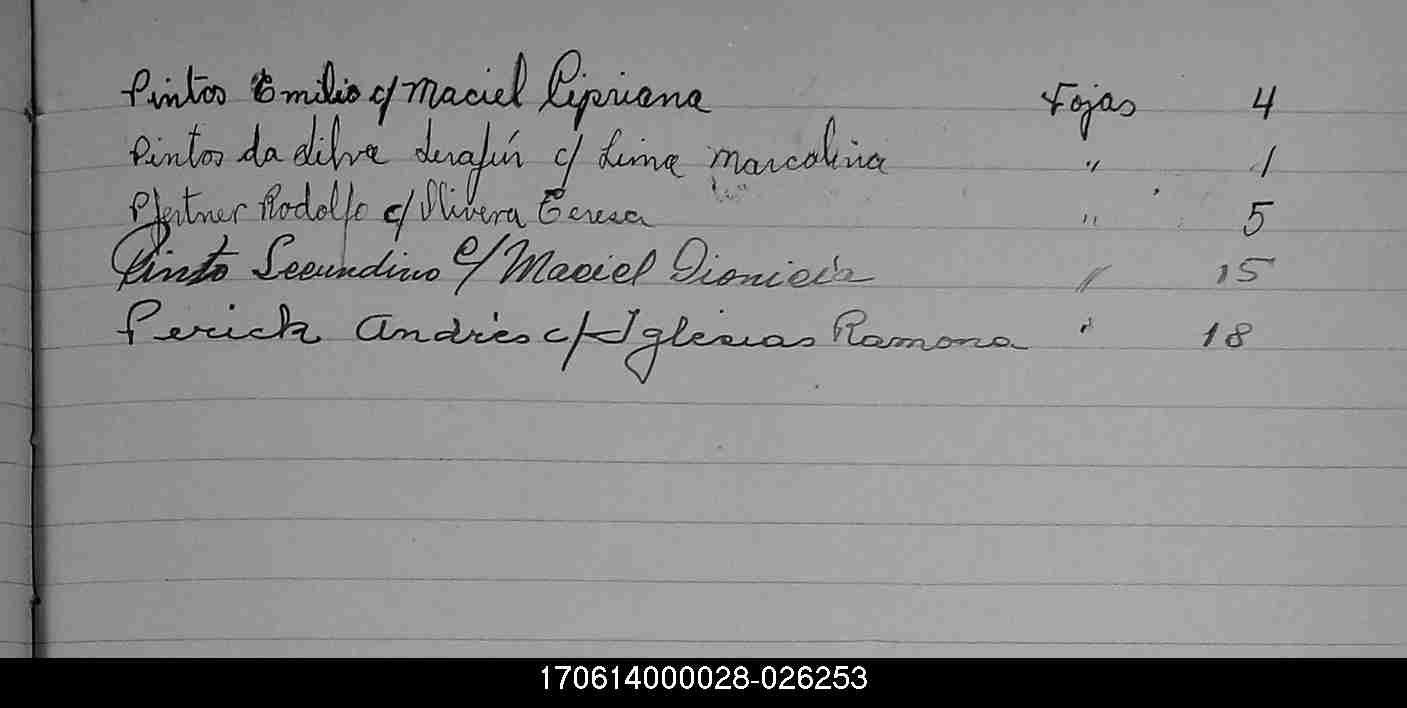 Pintos Emilio c/ Maciel Cipriana Fojas 4
Pintos da Silva Serafín c/ Lima Marcolina " 1
Pfertner Rodolfo c/ Olivera Teresa " 5
Pinto Secundino c/ Maciel Dionicia " 15
Perich Andrés c/ Iglesias Ramona " 18
170614000028-026253